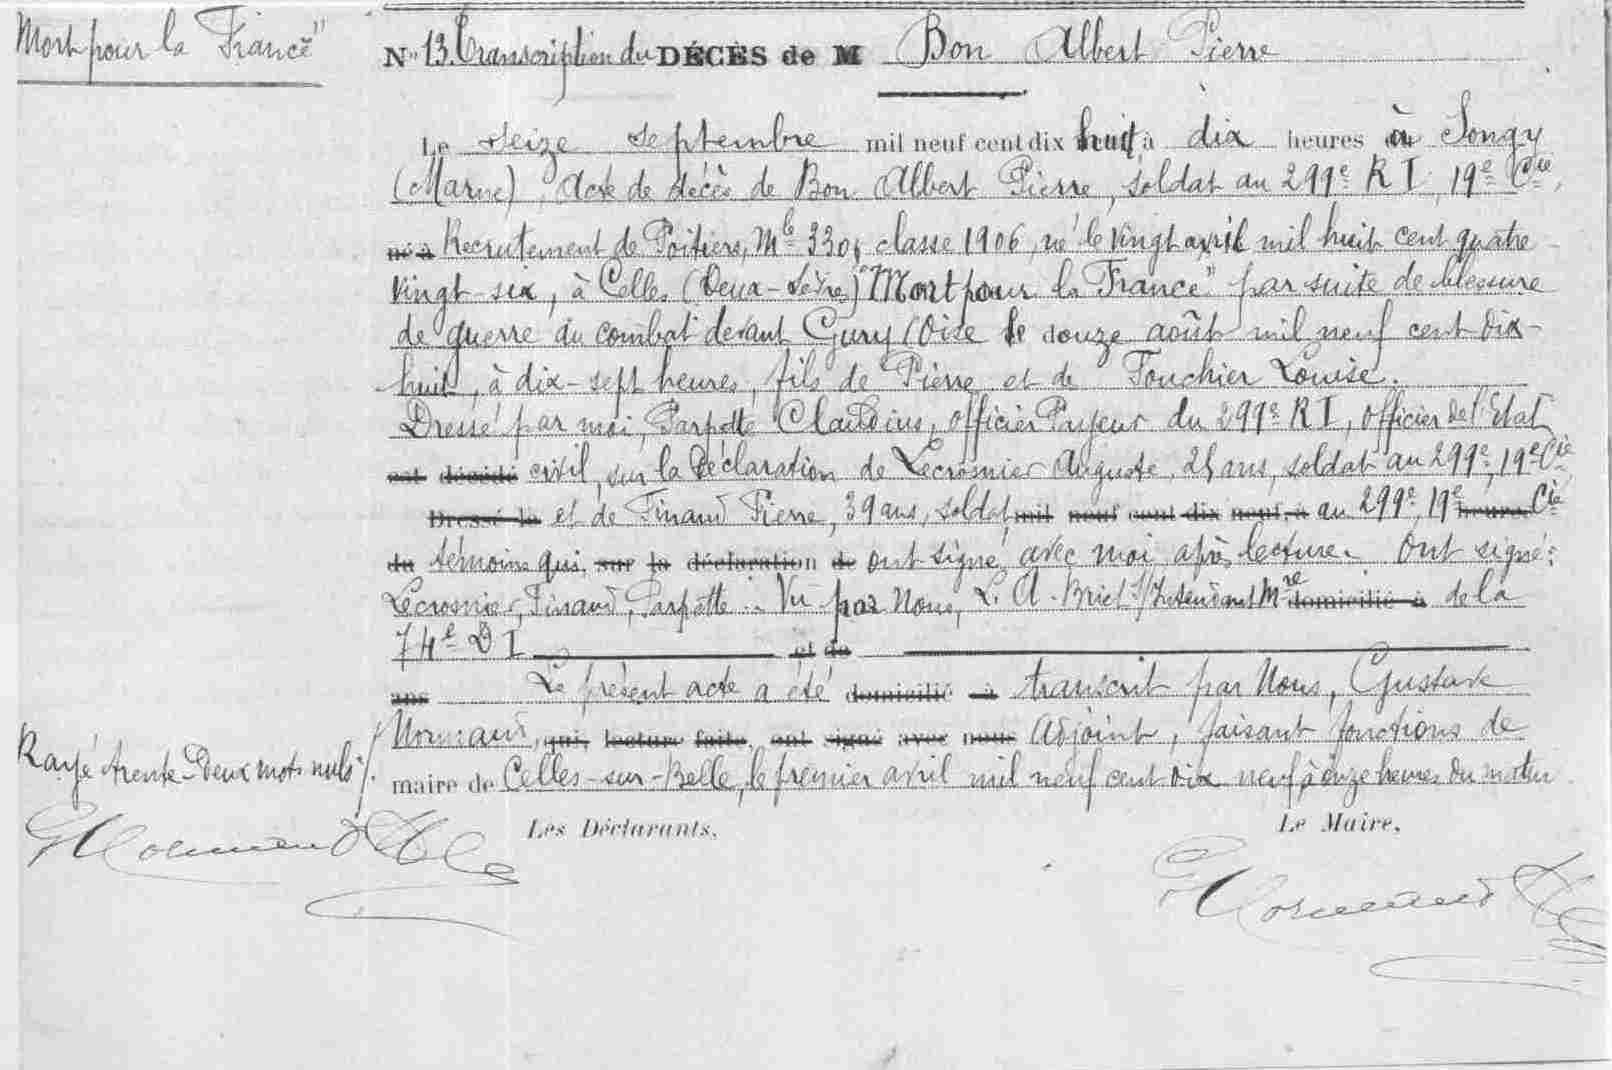 Mort pour la France"
N° 13. Transcription du DÉCÈS de M Bon Albert Pierre
Le seize septembre mil neuf cent dix huit à dix heures à Songy
(Marne), Acte de décès de Bon Albert Pierre, soldat au 299e R I, 19e Cie,
né à Recrutement de Poitiers, Mle 330, classe 1906, né le vingt avril mil huit cent quatre
vingt-six, à Celles (Deux-Sèvres) "Mort pour la France" par suite de blessure
de guerre au combat devant Gury (Oise le douze août mil neuf cent dix-
huit, à dix-sept heures, fils de Pierre et de Fouchier Louise.
Dressé par moi, Parpette Claudius, officier Payeur du 299e R I, officier de l'Etat
est décédé civil, sur la déclaration de Lecrosnier Auguste, ans, soldat au 299e, 19e Cie
Dressé le et de Finaud Pierre, 39 ans, soldat mil neuf cent dix neuf, à au 299e, 19e heures Cie
du témoins qui, sur la déclaration de ont signé avec moi après lecture. Ont signé:
Lecrosnier, Finaud, Parpette. Vu par Nous, L. A. Briet S/Intendant Mre domicilié à de la
74e D I et de
ans Le présent acte a été domicilié à transcrit par Nous, Gustave
Normand, qui, lecture faite, ont signé avec nous Adjoint, faisant fonctions de
maire de Celles-sur-Belle, le premier avril mil neuf cent dix neuf à onze heures du matin
Rayé trente-deux mots nuls
Les Déclarants,
Le Maire,
GNormand
GNormand